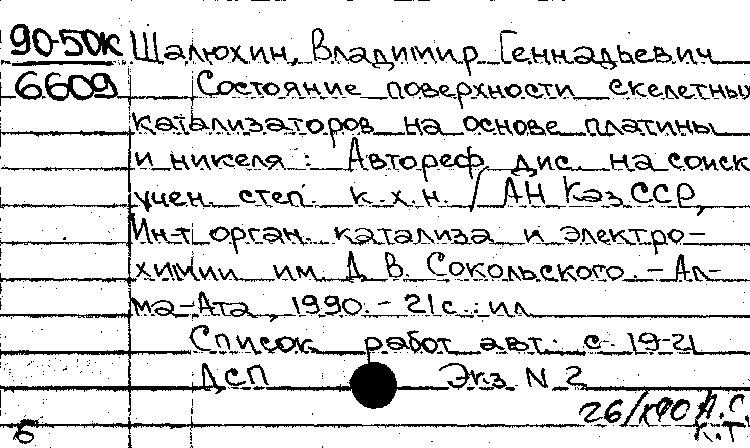 90-50к Шалюхин, Владимир Геннадьевич
6609 Состояние поверхности скелетных
катализаторов на основе платины
и никеля : Автореф. дис. на соиск
учен. степ. к.х.н. / АН КазССР,
Ин-т орган. катализа и электро-
химии им. Д. В. Сокольского. - Ал-
ма-Ата, 1990. - 21 с. : ил
Список работ авт. с. 19-21
ДСП Экз N 2
А.С.
Б к.т